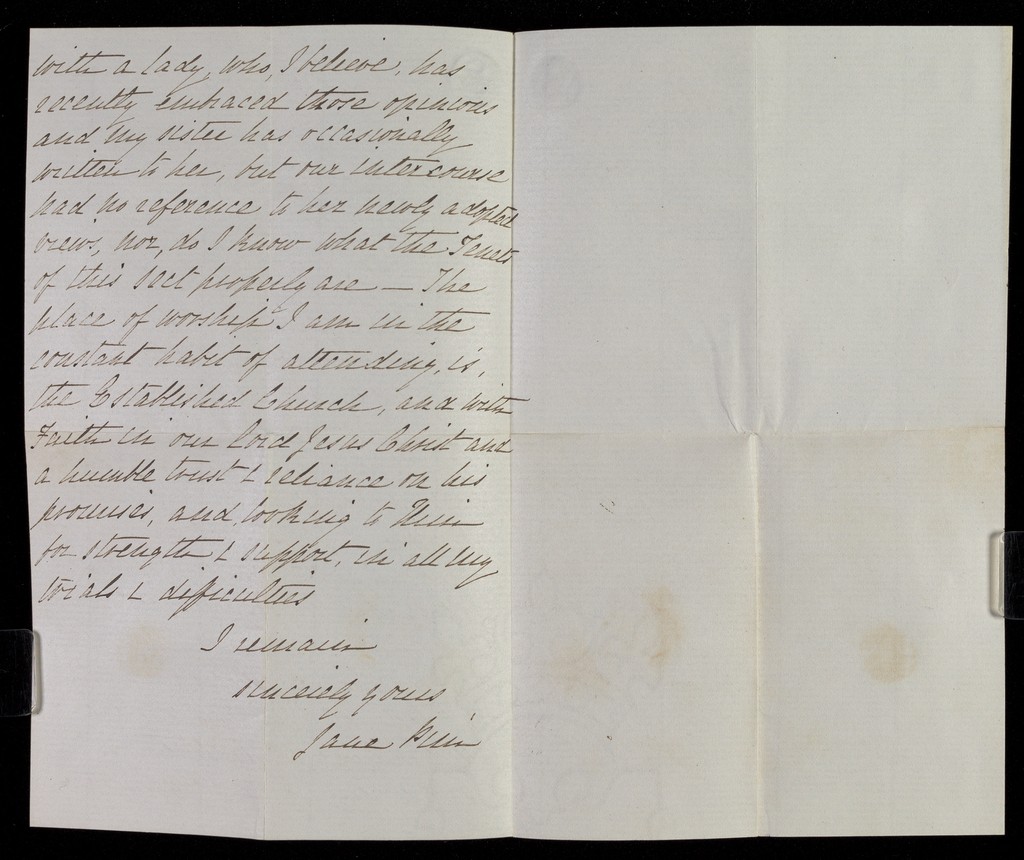 with a lady, who, I believe, has
recently embraced those opinions
and my sister has occasionally
written to her, but our intercourse
had no reference to her newly adopted
views, nor, do I know what the Tenets
of this sect properly are — The
place of worship I am in the
constant habit of attending, is,
the Established Church, and with
Faith in our Lord Jesus Christ and
a humble trust & reliance on his
promises, and, looking to Him
for strength & support, in all my
trials & difficulties
I remain
sincerely yours
Jane